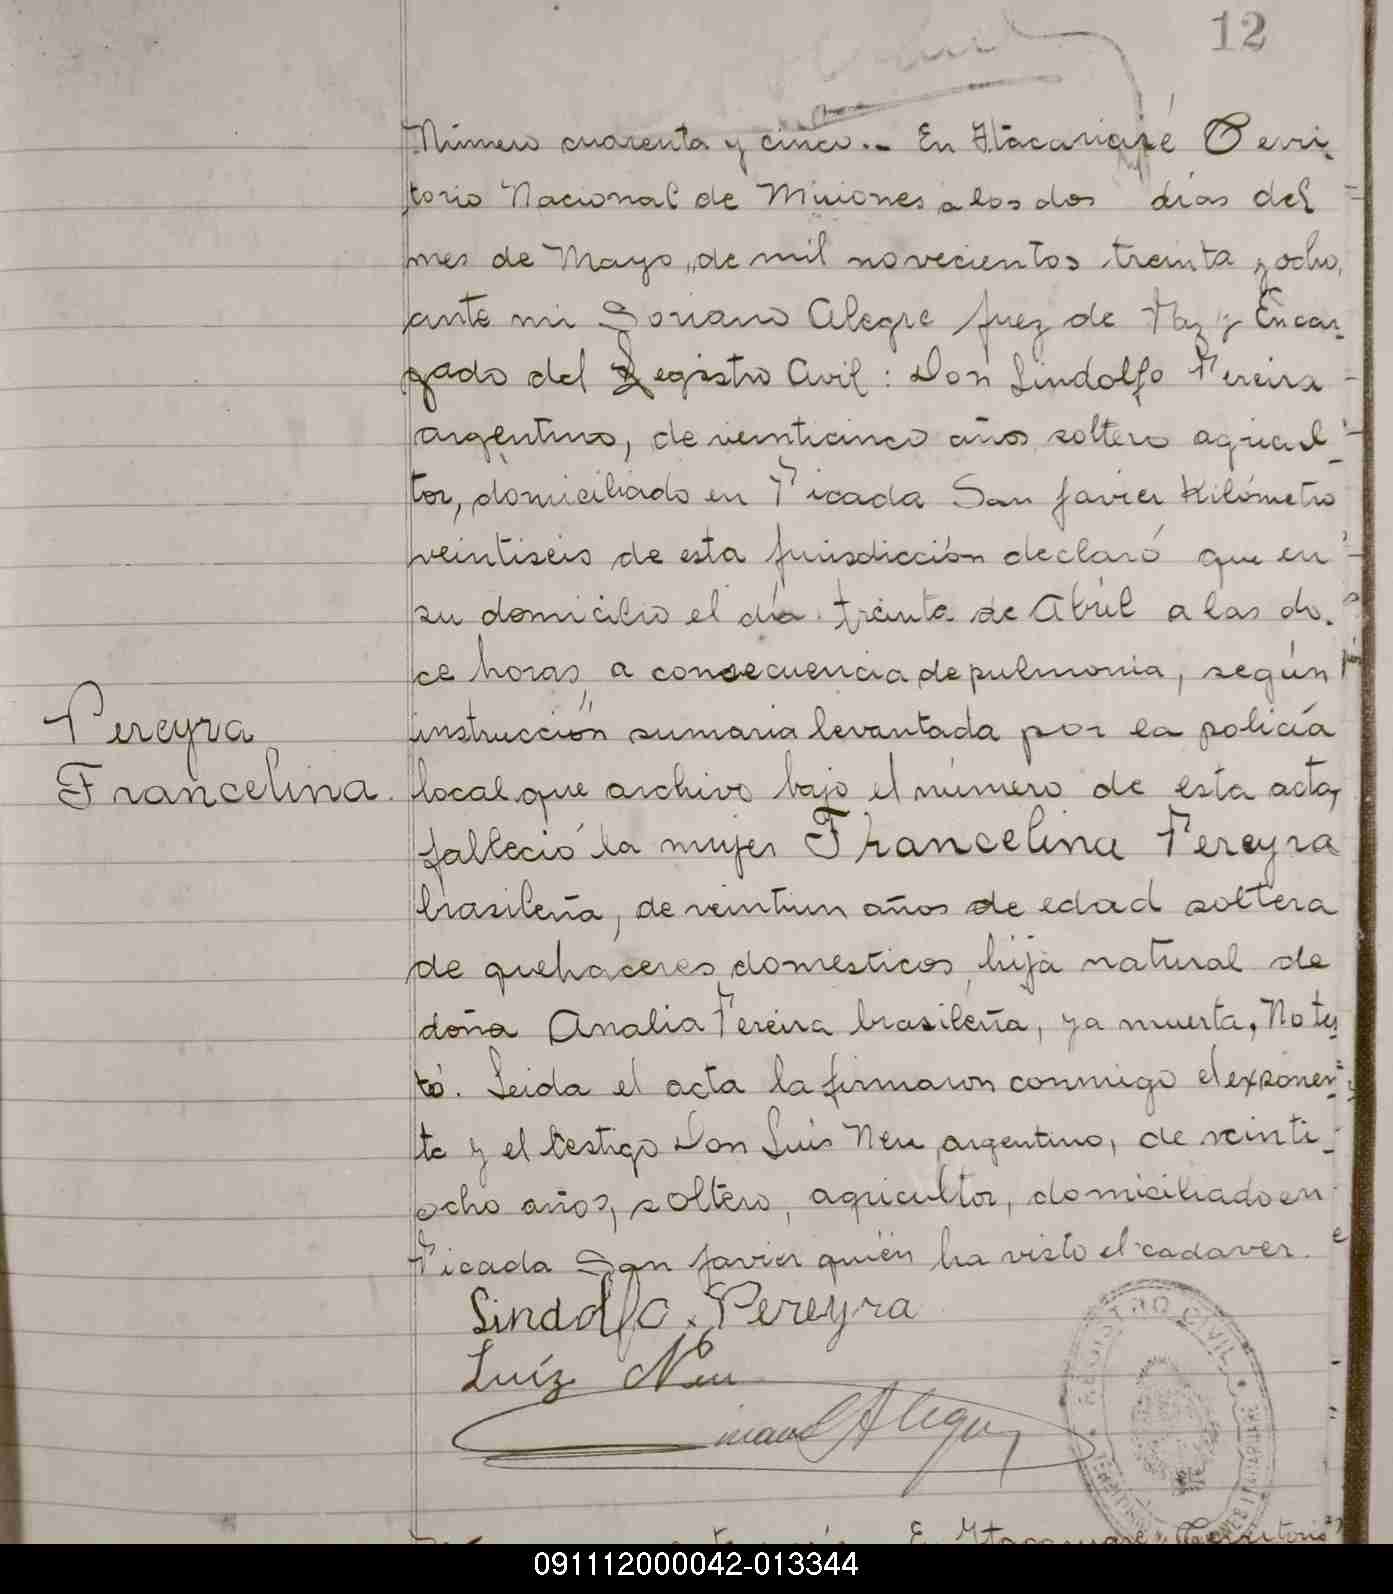 12
Número cuarenta y cinco.- En Itacaruaré Terri-
torio Nacional de Misiones a los dos días del
mes de Mayo, de mil novecientos treinta y ocho,
ante mi Soriano Alegre Juez de Paz y Encar-
gado del Registro Civil: Don Lindolfo Pereira
argentino, de veinticinco años soltero agricul-
tor, domiciliado en Picada San Javier Kilómetro
veintiseis de esta jurisdicción declaró que en
su domicilio el día treinta de Abril a las do-
ce horas, a consecuencia de pulmonia, según
instrucción sumaria levantada por la policía
local que archivo bajo el número de esta acta,
Pereyra
Francelina.
falleció la mujer Francelina Pereyra
brasileña, de veintiun años de edad soltera
de quehaceres domesticos, hija natural de
doña Analia Pereira brasileña, ya muerta. No tes-
tó. Leida el acta la firmaron conmigo el exponen-
te y el testigo Don Luis Neu, argentino, de veinti-
ocho años, soltero, agricultor, domiciliado en
Picada San Javier quién ha visto el cadaver.
Lindolfo. Pereyra
Luíz Neu
Alegre
REGISTRO CIVIL
En Itacaruaré Territorio
091112000042-013344